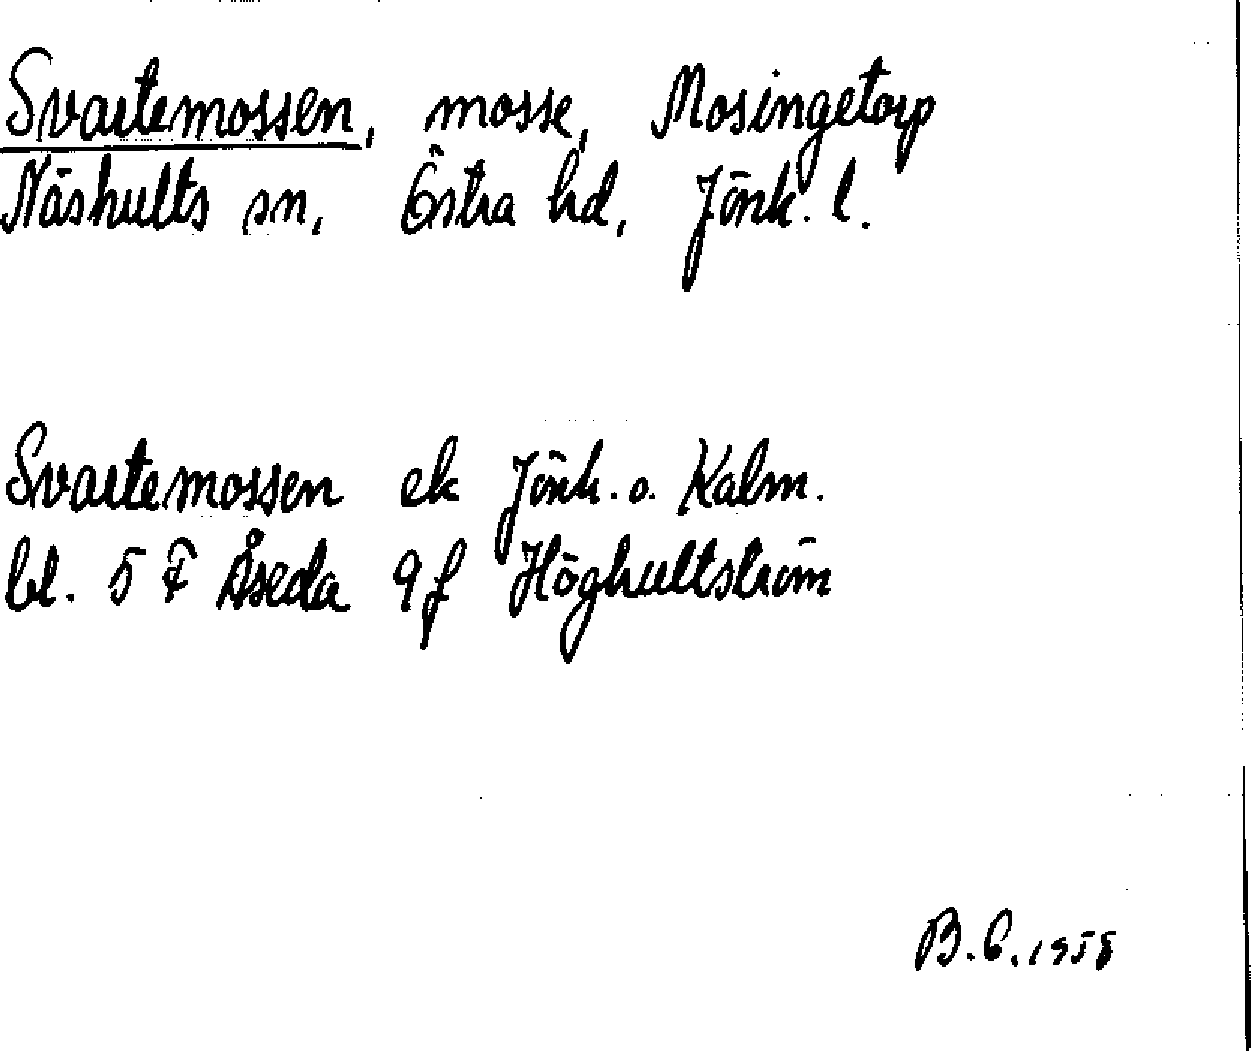 Svartemossen, mosse, Mosingetorp
Näshults sn, Östra hd, Jönk. l.
Svartemossen ek Jönk. o. Kalm.
bl. 5 F Åseda 9 f Höghultström
B.C. 1958